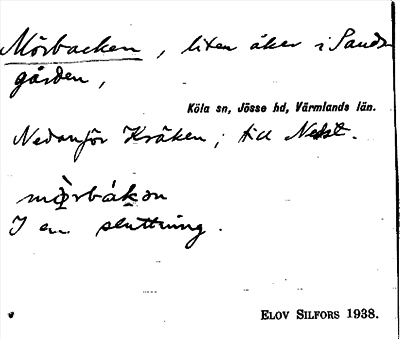 Mörbacken, liten åker i Sands-
gården,
Köla sn, Jösse hd, Värmlands län.
Nedanför Kråken, till Nedst.
mö̀rbákən
I en sluttning.
ELOV SILFORS 1938.